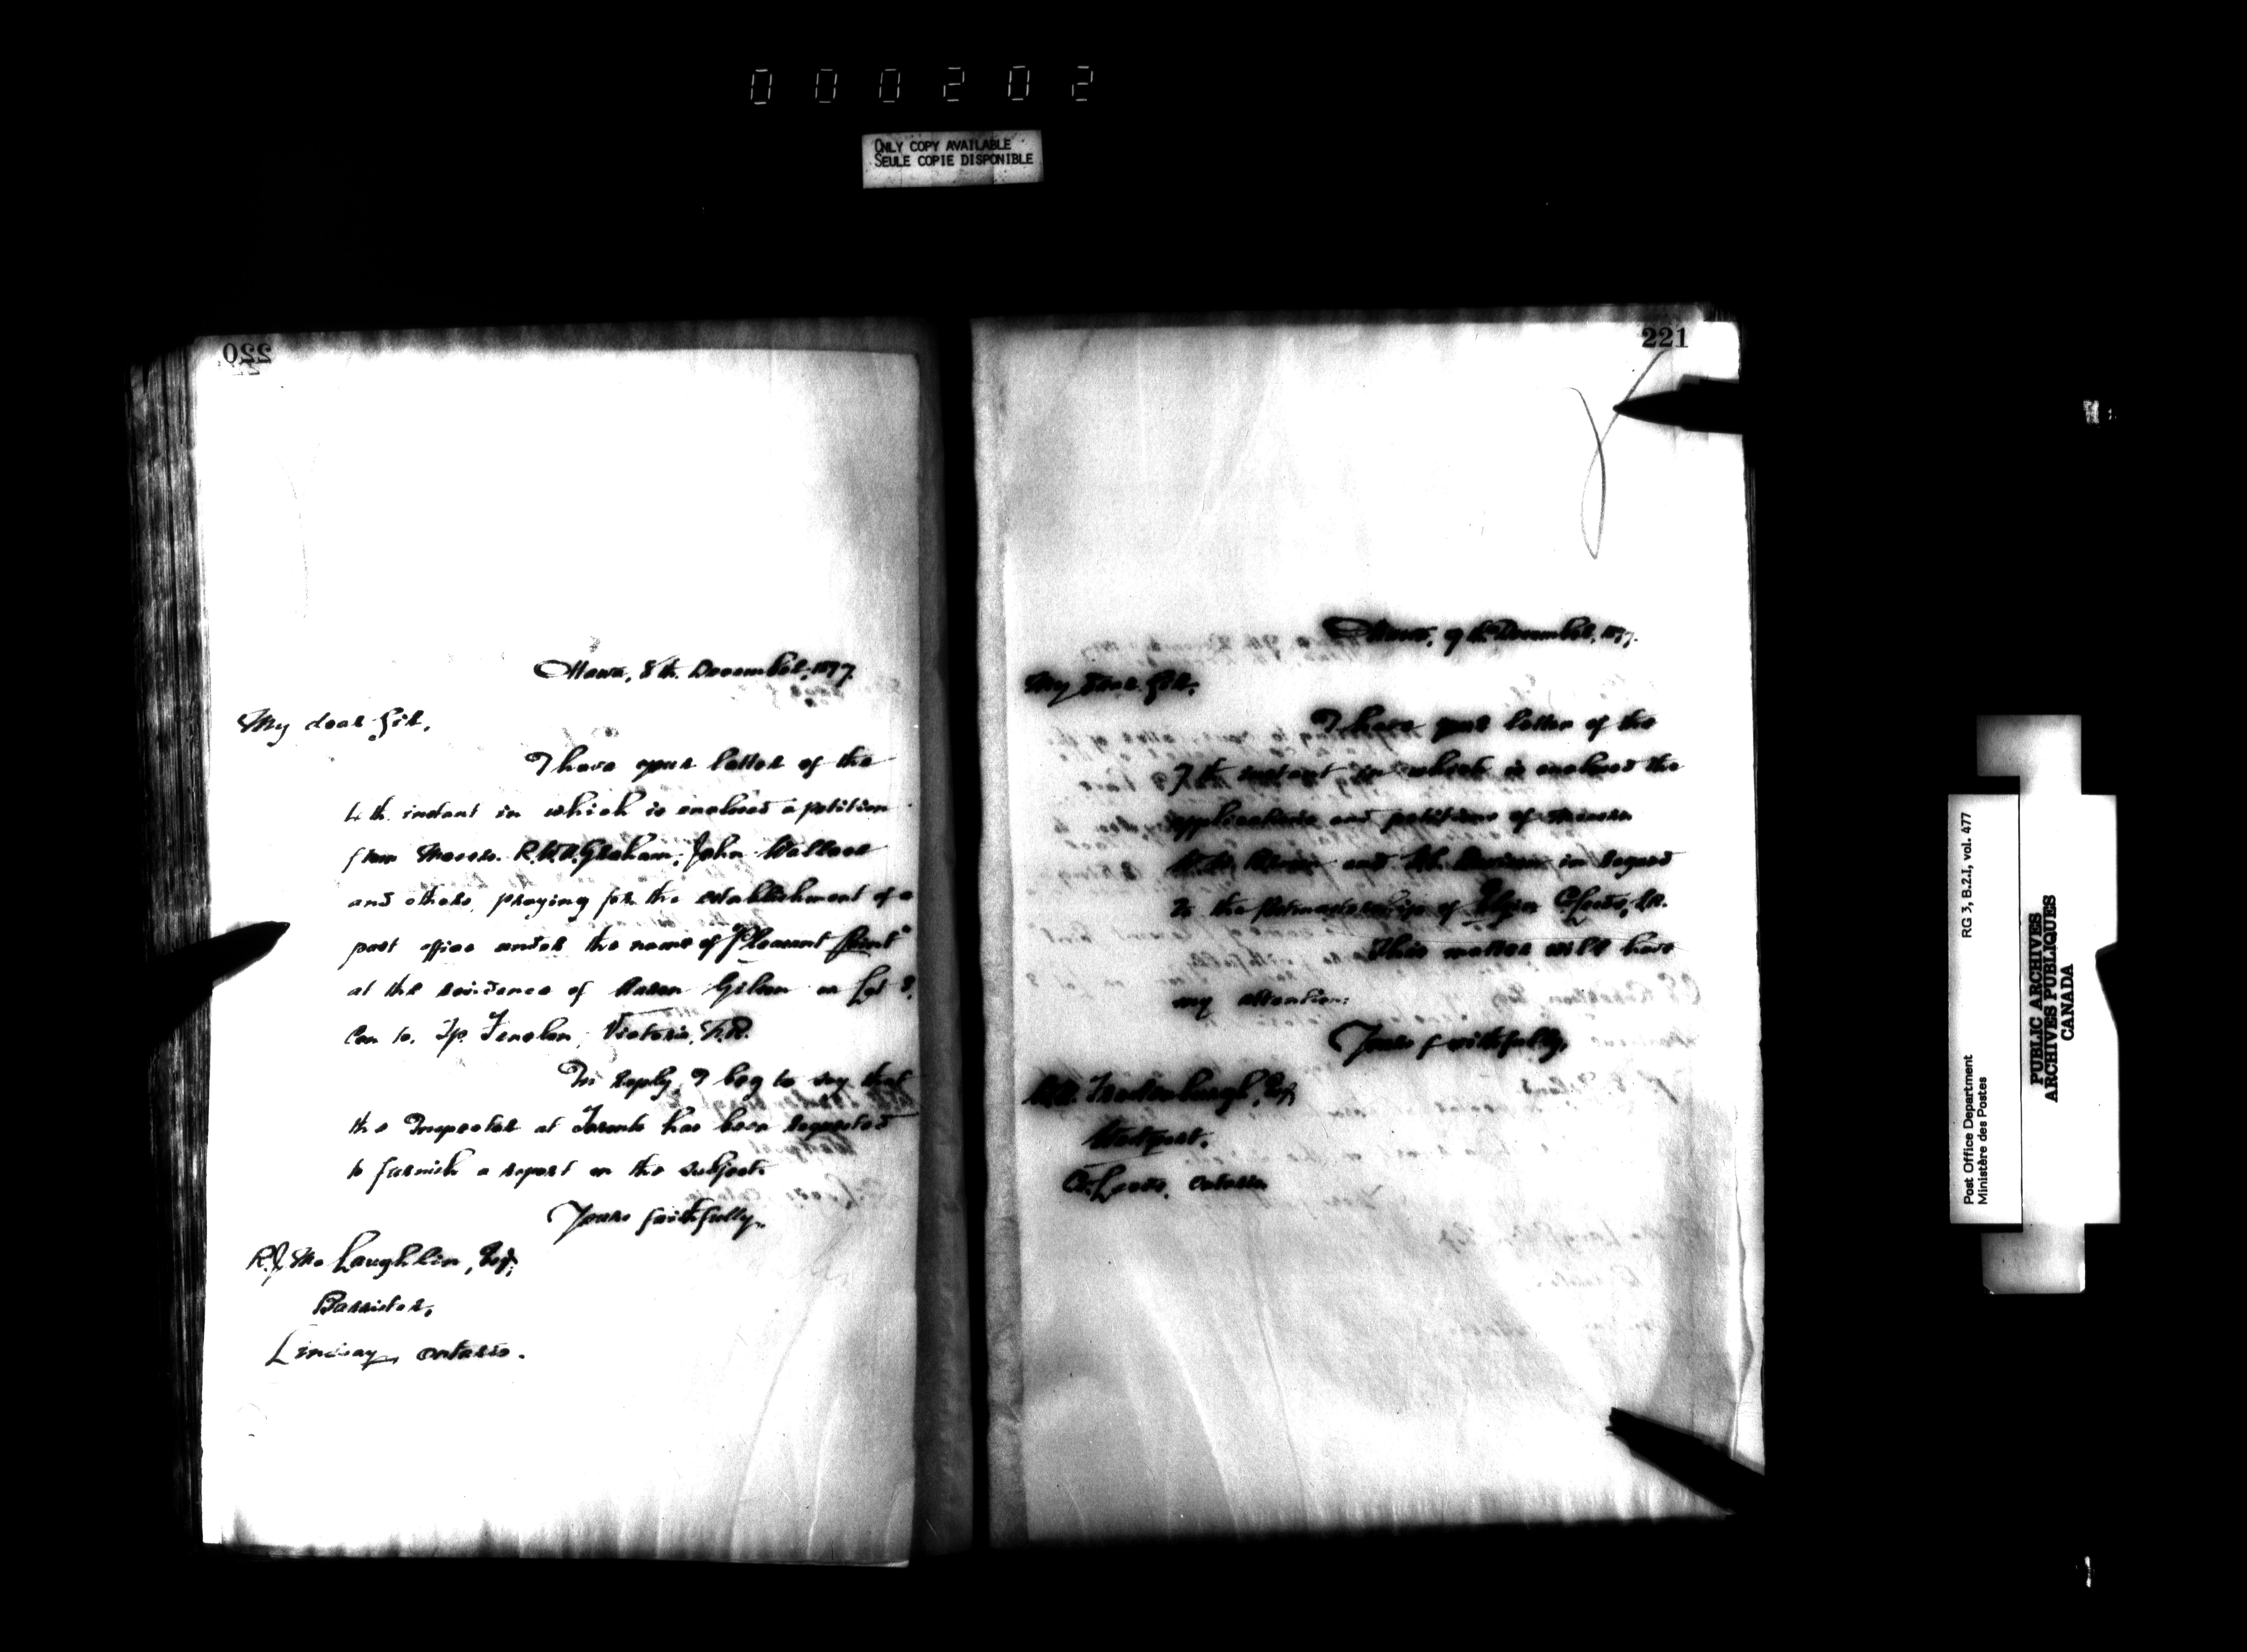 000202
ONLY COPY AVAILABLE
SEULE COPIE DISPONIBLE
220
Ottawa, 8th. December, 1897.
My dear Sir,
I have your letter of the
4th. instant in which is enclosed a petition
from Messrs. R.W.H. Graham, John Wallace
and others, praying for the establishment of a
post office under the name of "Pleasant Point"
at the residence of Aaron Gilson on Lot 8,
Con 10, Tp. Fenelon, Victoria, N.R.
In reply, I beg to say that
the Inspector at Toronto has been requested
to furnish a report on the subject.
Yours faithfully,
R.J. McLaughlin, Esq.,
Barrister,
Lindsay, Ontario.
221
Ottawa, 9th December, 1897.
My dear Sir,
I have your letter of the
7th instant in which is enclosed the
applications and petitions of
and in regard
to the Postmastership of Elgin Co. Leeds, S.R.
This matter will have
my attention.
Yours faithfully,
Esq.
Westport,
Co. Leeds, Ontario
Post Office Department
Ministère des Postes
RG 3, B.2.I, vol. 477
PUBLIC ARCHIVES
ARCHIVES PUBLIQUES
CANADA